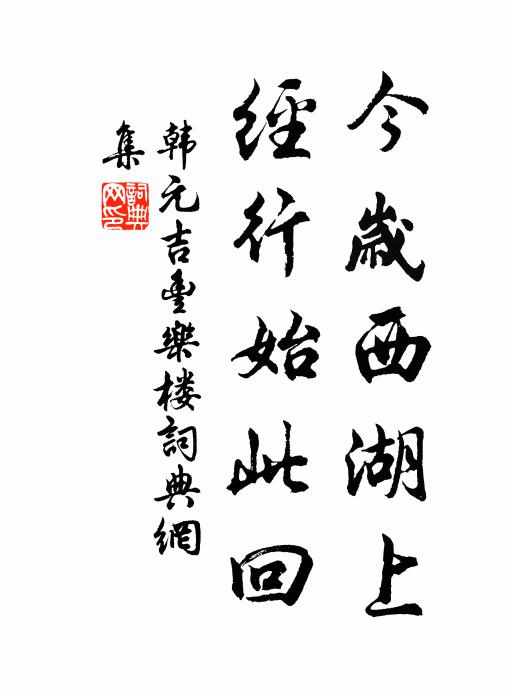 今歲西湖上
經行始此回
韩元吉豐樂楼詞典網
集
詞典网印